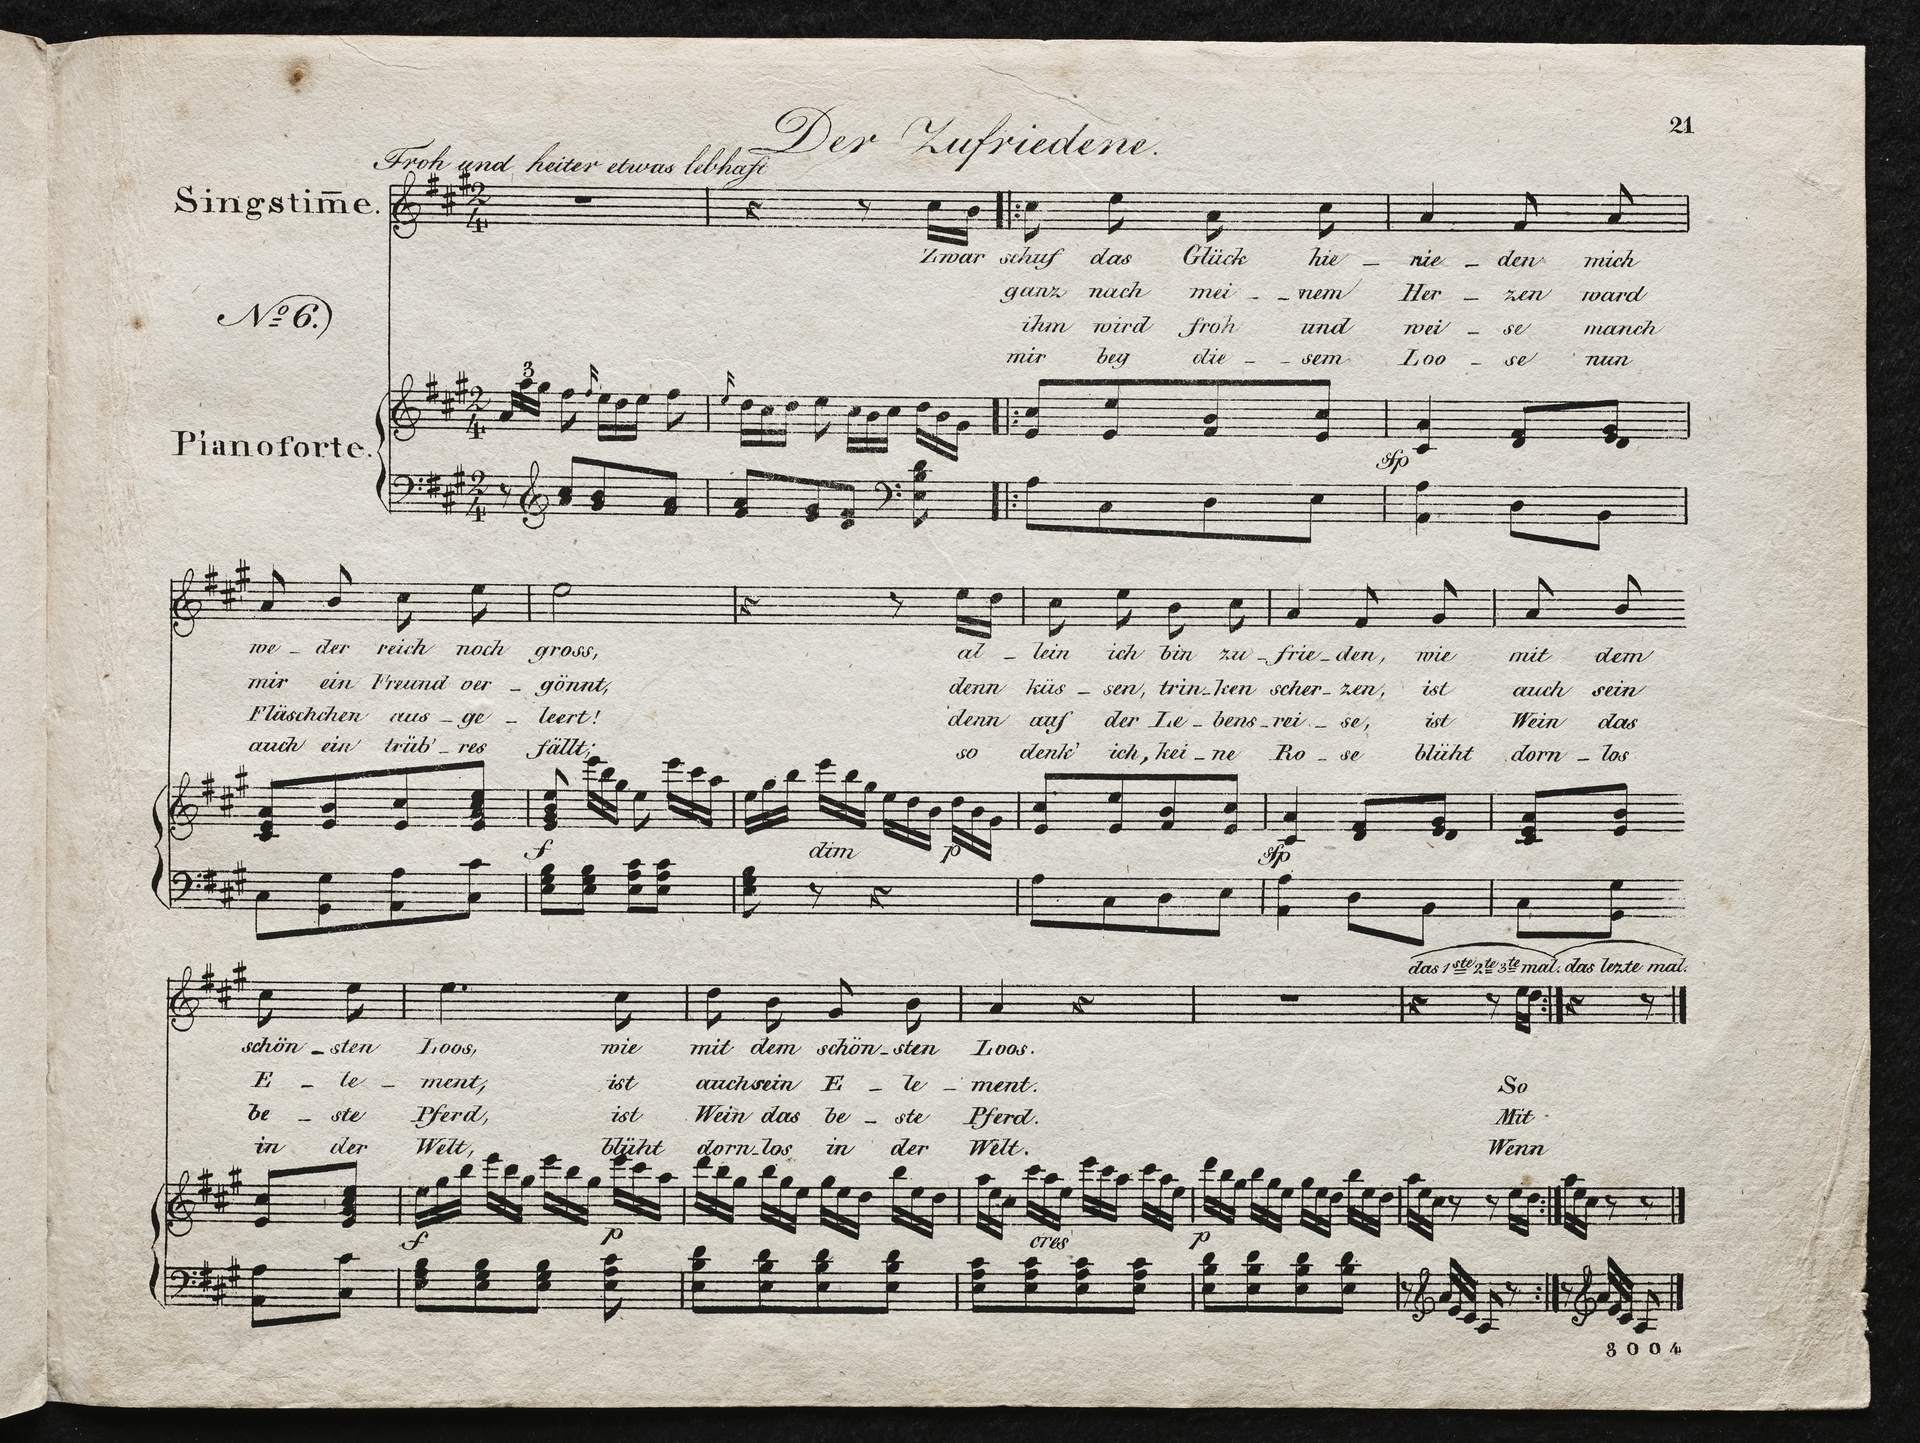 Der Zufriedene.
21
Froh und heiter etwas lebhaft
Singstim̄e.
Zwar schuf das Glück hie - nie - den mich
ganz nach mei - - nem Her - zen ward
ihm wird froh und wei - se manch
mir bey die - - sem Loo - se nun
No 6.)
3
Pianoforte.
sfp
we - der reich noch gross, al - lein ich bin zu - frie - den, wie mit dem
mir ein Freund ver - gönnt, denn küs - sen, trin - ken scher - zen, ist auch sein
Fläschchen aus - ge - leert! denn auf der Le - bens - rei - se, ist Wein das
auch ein trüb' - res fällt; so denk' ich, kei - ne Ro - se blüht dorn - los
f dim p sfp
das 1ste 2te 3te mal. das lezte mal.
schön - sten Loos, wie mit dem schön - sten Loos.
E - le - ment, ist auch sein E - le - ment. So
be - ste Pferd, ist Wein das be - ste Pferd. Mit
in der Welt, blüht dorn - los in der Welt. Wenn
f p cres p
3004